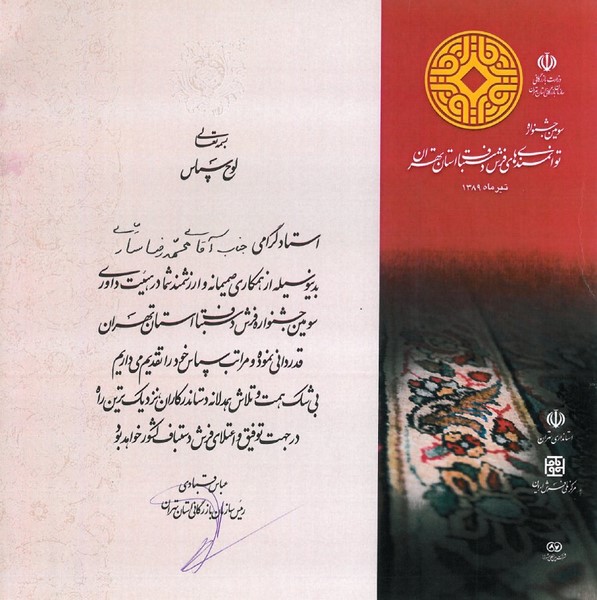 وزارت بازرگانی
سازمان بازرگانی استان تهران
سومین جشنواره
توانمندی‌های فرش دستبافت استان تهران
تیر ماه ۱۳۸۹
برتعالی
لوح سپاس
استاد گرامی جناب آقای محمدرضا
بدینوسیله از همکاری صمیمانه و ارزشمند شما در هیئت داوری
سومین جشنواره فرش دستبافت استان تهران
قدردانی نموده و مراتب سپاس خود را تقدیم می داریم
بی شک همت و تلاش همدلانه دستاندرکاران نزدیک ترین راه
در جهت توفیق و اعتلای فرش دستباف کشور خواهد بود
عباس قبادی
رئیس سازمان بازرگانی استان تهران
استانداری تهران
مرکز ملی فرش ایران